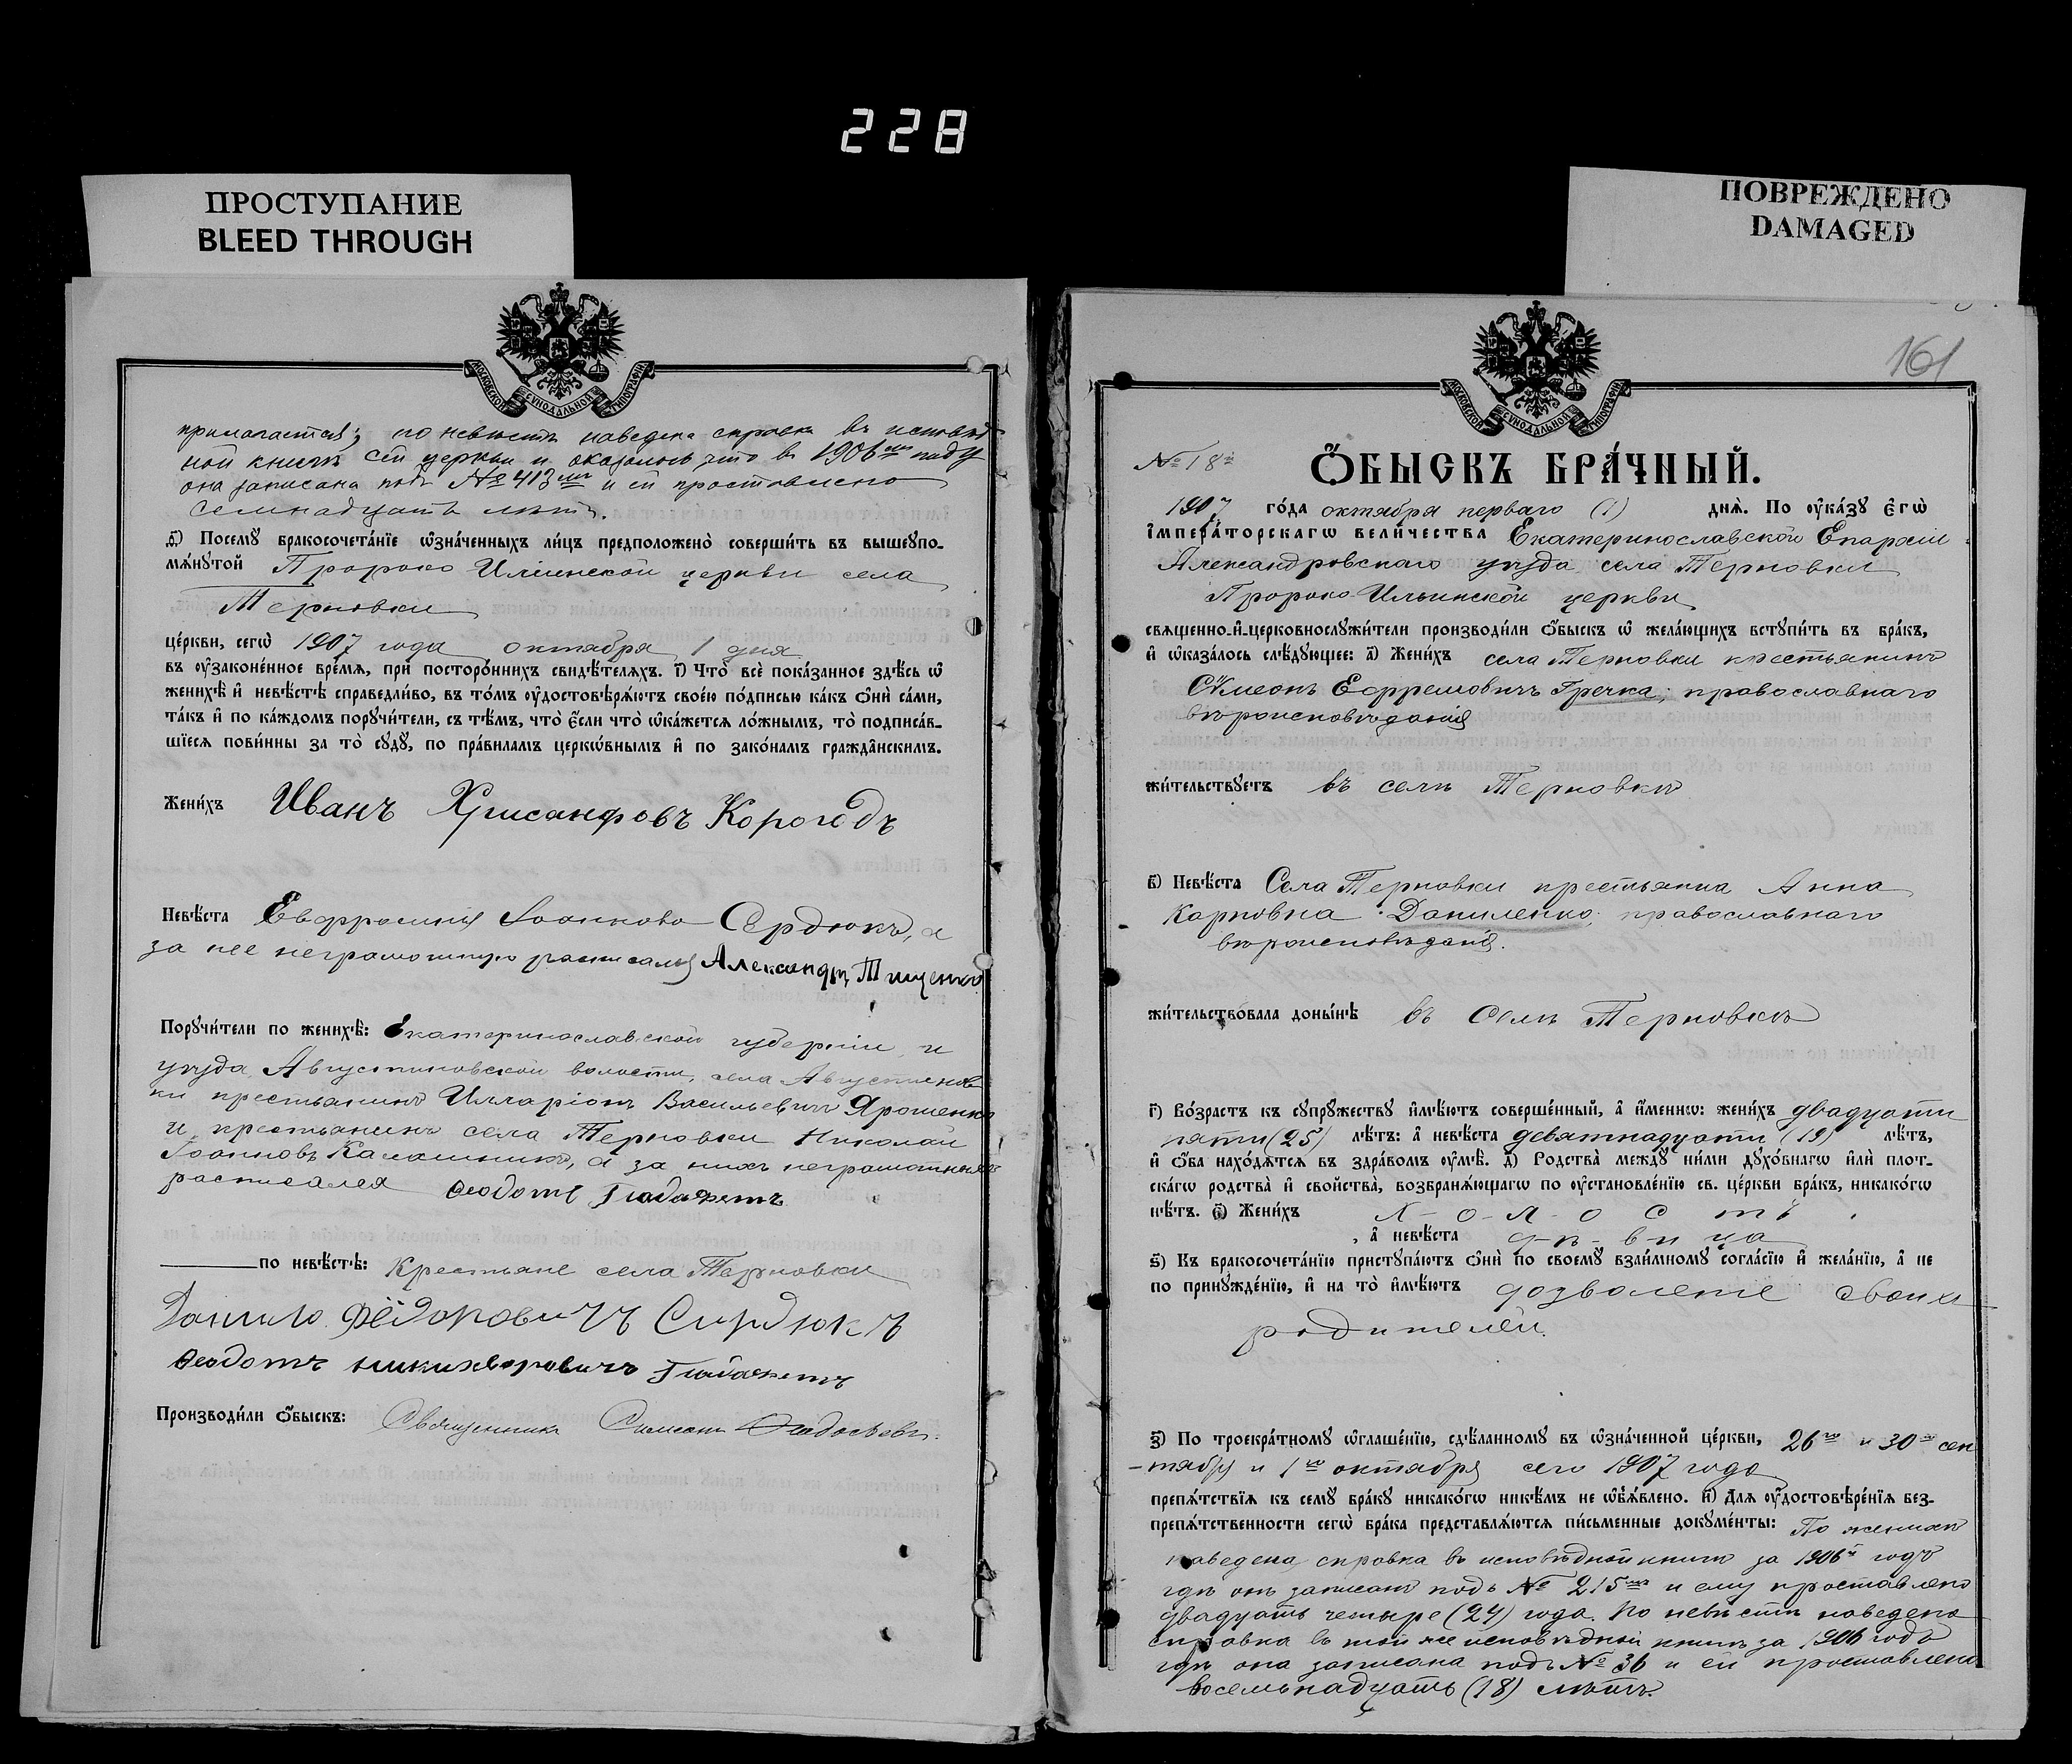 228
ПРОСТУПАНИЕ
BLEED THROUGH
ПОВРЕЖДЕНО
DAMAGED
МОСКОВСКОЙ СѴНОДАЛЬНОЙ ТИПОГРАФІИ
прилагается; по невѣстѣ наведена справка въ исповѣд
ной книгѣ сей церкви и оказалось что въ 1906мъ году
она записана подъ № 413мъ и ей проставлено
семнадцать лѣтъ.
д҃і) Посемꙋ̀ бракосочета́нїе ѡ҆зна́ченныхъ ли́цъ предположено̀ соверши́ть въ вышеꙋпо-
мѧ́нꙋтой Пророко Иліинской церкви села
Терновки
це́ркви, сегѡ̀ 1907 года октября 1 дня
въ ᲂу҆законе́нное вре́мѧ, прѝ посторо́ннихъ свидѣ́телѧхъ. і҃) Что̀ всѐ пока́занное здѣ́сь ѡ҆
женихѣ̀ и҆ невѣ́стѣ справедли́во, въ то́мъ ᲂу҆достовѣрѧ́ютъ свое́ю по́дписью ка́къ ѻ҆нѝ са́ми,
та́къ и҆ по ка́ждомъ порꙋчи́тели, съ тѣ́мъ, что̀ є҆́сли что̀ ѡ҆ка́жетсѧ ло́жнымъ, то̀ подписа́в-
шїесѧ пови́нны за то̀ сꙋдꙋ̀, по пра́виламъ церко́внымъ и҆ по зако́намъ гражда́нскимъ.
Жени́хъ Иванъ Хрисанфовъ Корогодъ
Невѣ́ста Евфросинія Іоаннова Сердюкъ, а
за нее неграмотную расписался Александръ Тищенко
Порꙋчи́тели по женихѣ̀: Екатеринославской губерніи и
уѣзда Августиновской волости, села Августинов
ки крестьянинъ Илларіонъ Васильевичъ Ярошенко
и крестьянинъ села Терновки Николай
Іоанновъ Калашникъ, а за нихъ неграмотныхъ
расписался Ѳеодотъ
по невѣ́стѣ: Крестьяне села Терновки
Данило Фёдоровичъ Сирдюкъ
Ѳеодотъ Никихворовичъ
Производи́ли ѻ҆́быскъ: Священникъ Симеонъ
161
МОСКОВСКОЙ СѴНОДАЛЬНОЙ ТИПОГРАФІИ
№ 18й
Ѻ҆́БЫСКЪ БРА́ЧНЫЙ.
1907 го́да октября перваго (1) днѧ̀. По ᲂу҆ка́зꙋ є҆гѡ̀
і҆мпера́торскагѡ вели́чества Екатеринославской Епархіи
Александровскаго уѣзда села Терновки
Пророко-Ильинской церкви
свѧщенно-и҆-церковнослꙋжи́тели производи́ли ѻ҆́быскъ ѡ҆ жела́ющихъ встꙋпи́ть въ бра́къ,
и҆ ѡ҆каза́лось слѣ́дꙋющее: а҃) Жени́хъ села Терновки крестьянинъ
Сѵмеонъ Ефремовичъ Гречка, православнаго
вѣроисповѣданія
жи́тельствꙋетъ въ селѣ Терновкѣ
в҃) Невѣ́ста Села Терновки крестьянка Анна
Карповна Даниленко, православнаго
вѣроисповѣданія.
жи́тельствовала доны́нѣ въ селѣ Терновкѣ
г҃) Во́зрастъ къ сꙋпрꙋ́жествꙋ и҆мѣ́ютъ соверше́нный, а҆ и҆́менно: жени́хъ двадцати
пяти (25) лѣ́тъ: а҆ невѣ́ста девятнадцати (19) лѣ́тъ,
и҆ ѻ҆́ба нахо́дѧтсѧ въ здра́вомъ ᲂу҆мѣ̀. д҃) Родства̀ междꙋ̀ ни́ми дꙋхо́внагѡ и҆лѝ плот-
ска́гѡ родства̀ и҆ сво́йства̀, возбранѧ́ющагѡ по ᲂу҆становле́нїю св. це́ркви бра́къ, никако́гѡ
нѣ́тъ. є҃) Жени́хъ х-о-л-о с т ъ
, а҆ невѣ́ста д-ѣ-в-и ца
ѕ҃) Къ бракосочета́нїю пристꙋпа́ютъ ѻ҆нѝ по своемꙋ̀ взаи́мномꙋ согла́сїю и҆ жела́нїю, а҆ не
по принꙋжде́нїю, и҆ на то̀ и҆мѣ́ютъ дозволеніе своихъ
родителей.
з҃) По троекра́тномꙋ ѡ҆глаше́нїю, сдѣ́ланномꙋ въ ѡ҆зна́ченной це́ркви, 26го и 30го сен
-тября и 1го октября сего 1907 года
препѧ́тствїѧ къ семꙋ̀ бра́кꙋ никако́гѡ никѣ́мъ не ѡ҆б̾ѧ́влено. и҃) Длѧ ᲂу҆достовѣре́нїѧ без-
препѧ́тственности сегѡ̀ бра́ка представлѧ́ютсѧ пи́сьменные докꙋме́нты: По женихѣ
наведена справка въ исповѣдной книгѣ за 1906й годъ
гдѣ онъ записанъ подъ № 215мъ и ему проставлено
двадцать четыре (24) года. По невѣстѣ наведена
справка въ той же исповѣдной книгѣ за 1906 годъ
гдѣ она записана подъ № 36 и ей проставлено
восемьнадцать (18) лѣтъ.